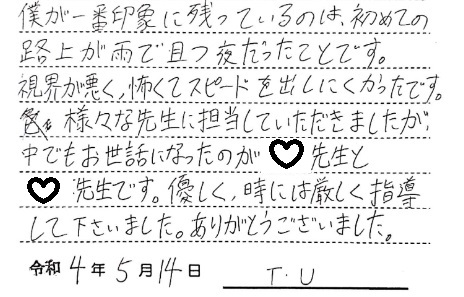 僕が一番印象に残っているのは、初めての
路上が雨で且つ夜だったことです。
視界が悪く、怖くてスピードを出しにくかったです。
様々な先生に担当していただきましたが、
中でもお世話になったのが♡先生と
♡先生です。優しく、時には厳しく指導
して下さいました。ありがとうございました。
令和4年5月14日 T.U